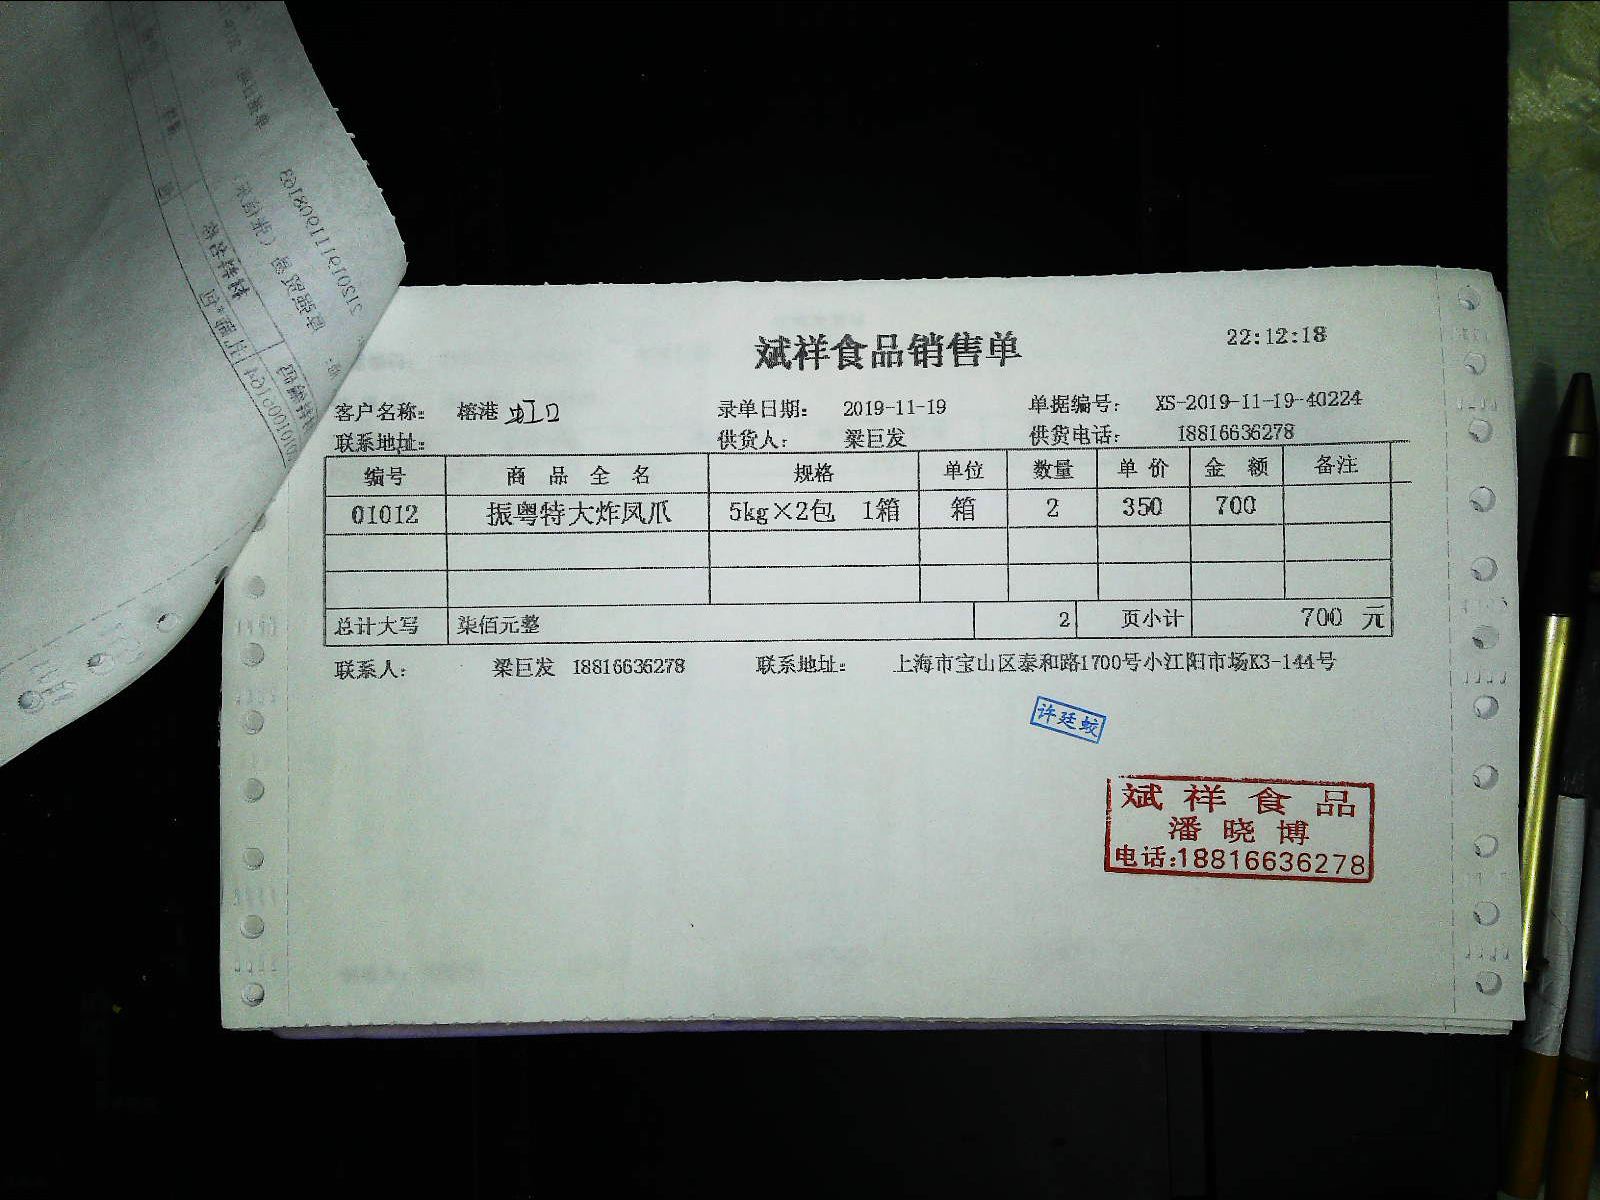 斌祥食品销售单 22:12:18
客户名称： 榕港 虹口 录单日期： 2019-11-19 单据编号： XS-2019-11-19-40224
联系地址： 供货人： 梁巨发 供货电话： 18816636278
编号 商品全名 规格 单位 数量 单价 金额 备注
01012 振粤特大炸凤爪 5kg×2包 1箱 箱 2 350 700
总计大写 柒佰元整 2 页小计 700 元
联系人： 梁巨发 18816636278 联系地址： 上海市宝山区泰和路1700号小江阳市场K3-144号
许廷蛟
斌祥食品
潘晓博
电话:18816636278